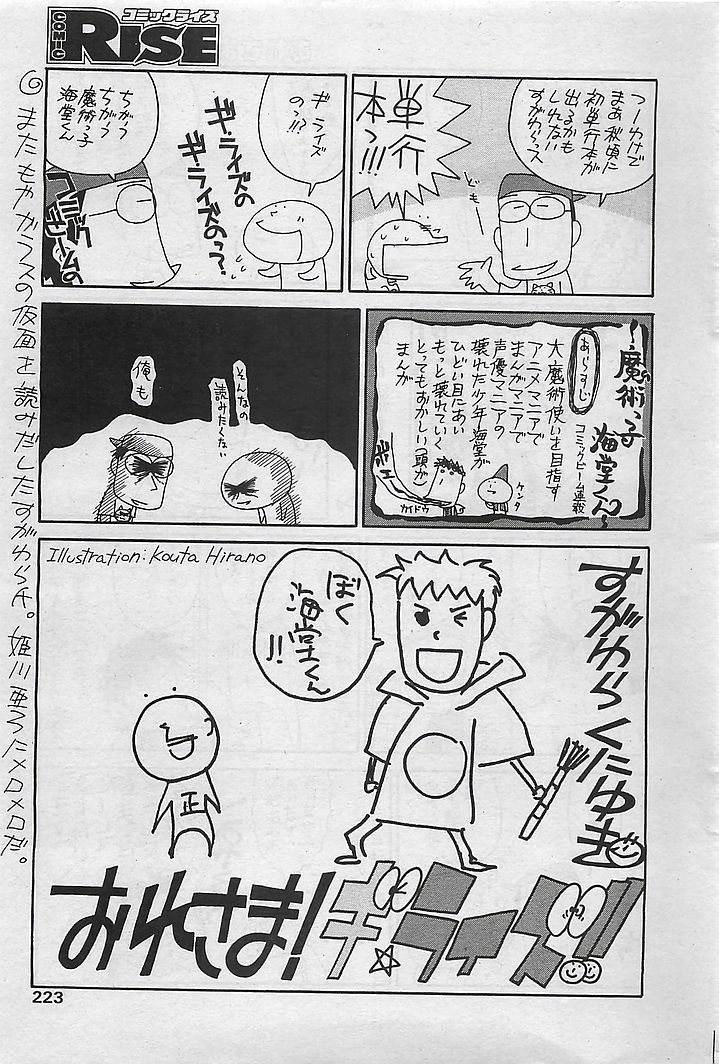 コミックライズ
COMIC RISE
つーわけで
まあ秋頃に
初単行本が
出るかも
しれない
すがわっス
ども
単行
本っ!!!
ギ・ライズ
のっ!!?
ギ・ライズの
ギ・ライズのっ?
ちがう
ちがう
魔術っ子
海堂くん
コミック
ビームの
〜魔術っ子
海堂くん〜
コミックビーム連載
あらすじ
大魔術使いを目指す
アニメマニアで
まんがマニアで
声優マニアの
壊れた少年海堂が
ひどい目にあい
もっと壊れていく
とってもおかしい(頭が)
まんが
ケンタ
カイドウ
そんなの
読みたくない
俺も
Illustration: Kouta Hirano
ぼく
海堂くん
!!
正
すがわらくにゆき
おれさま!ギ☆ライズ!!
またもやガラスの仮面を読みだしたすがわらくん。姫川亜弓にメロメロだ。
223